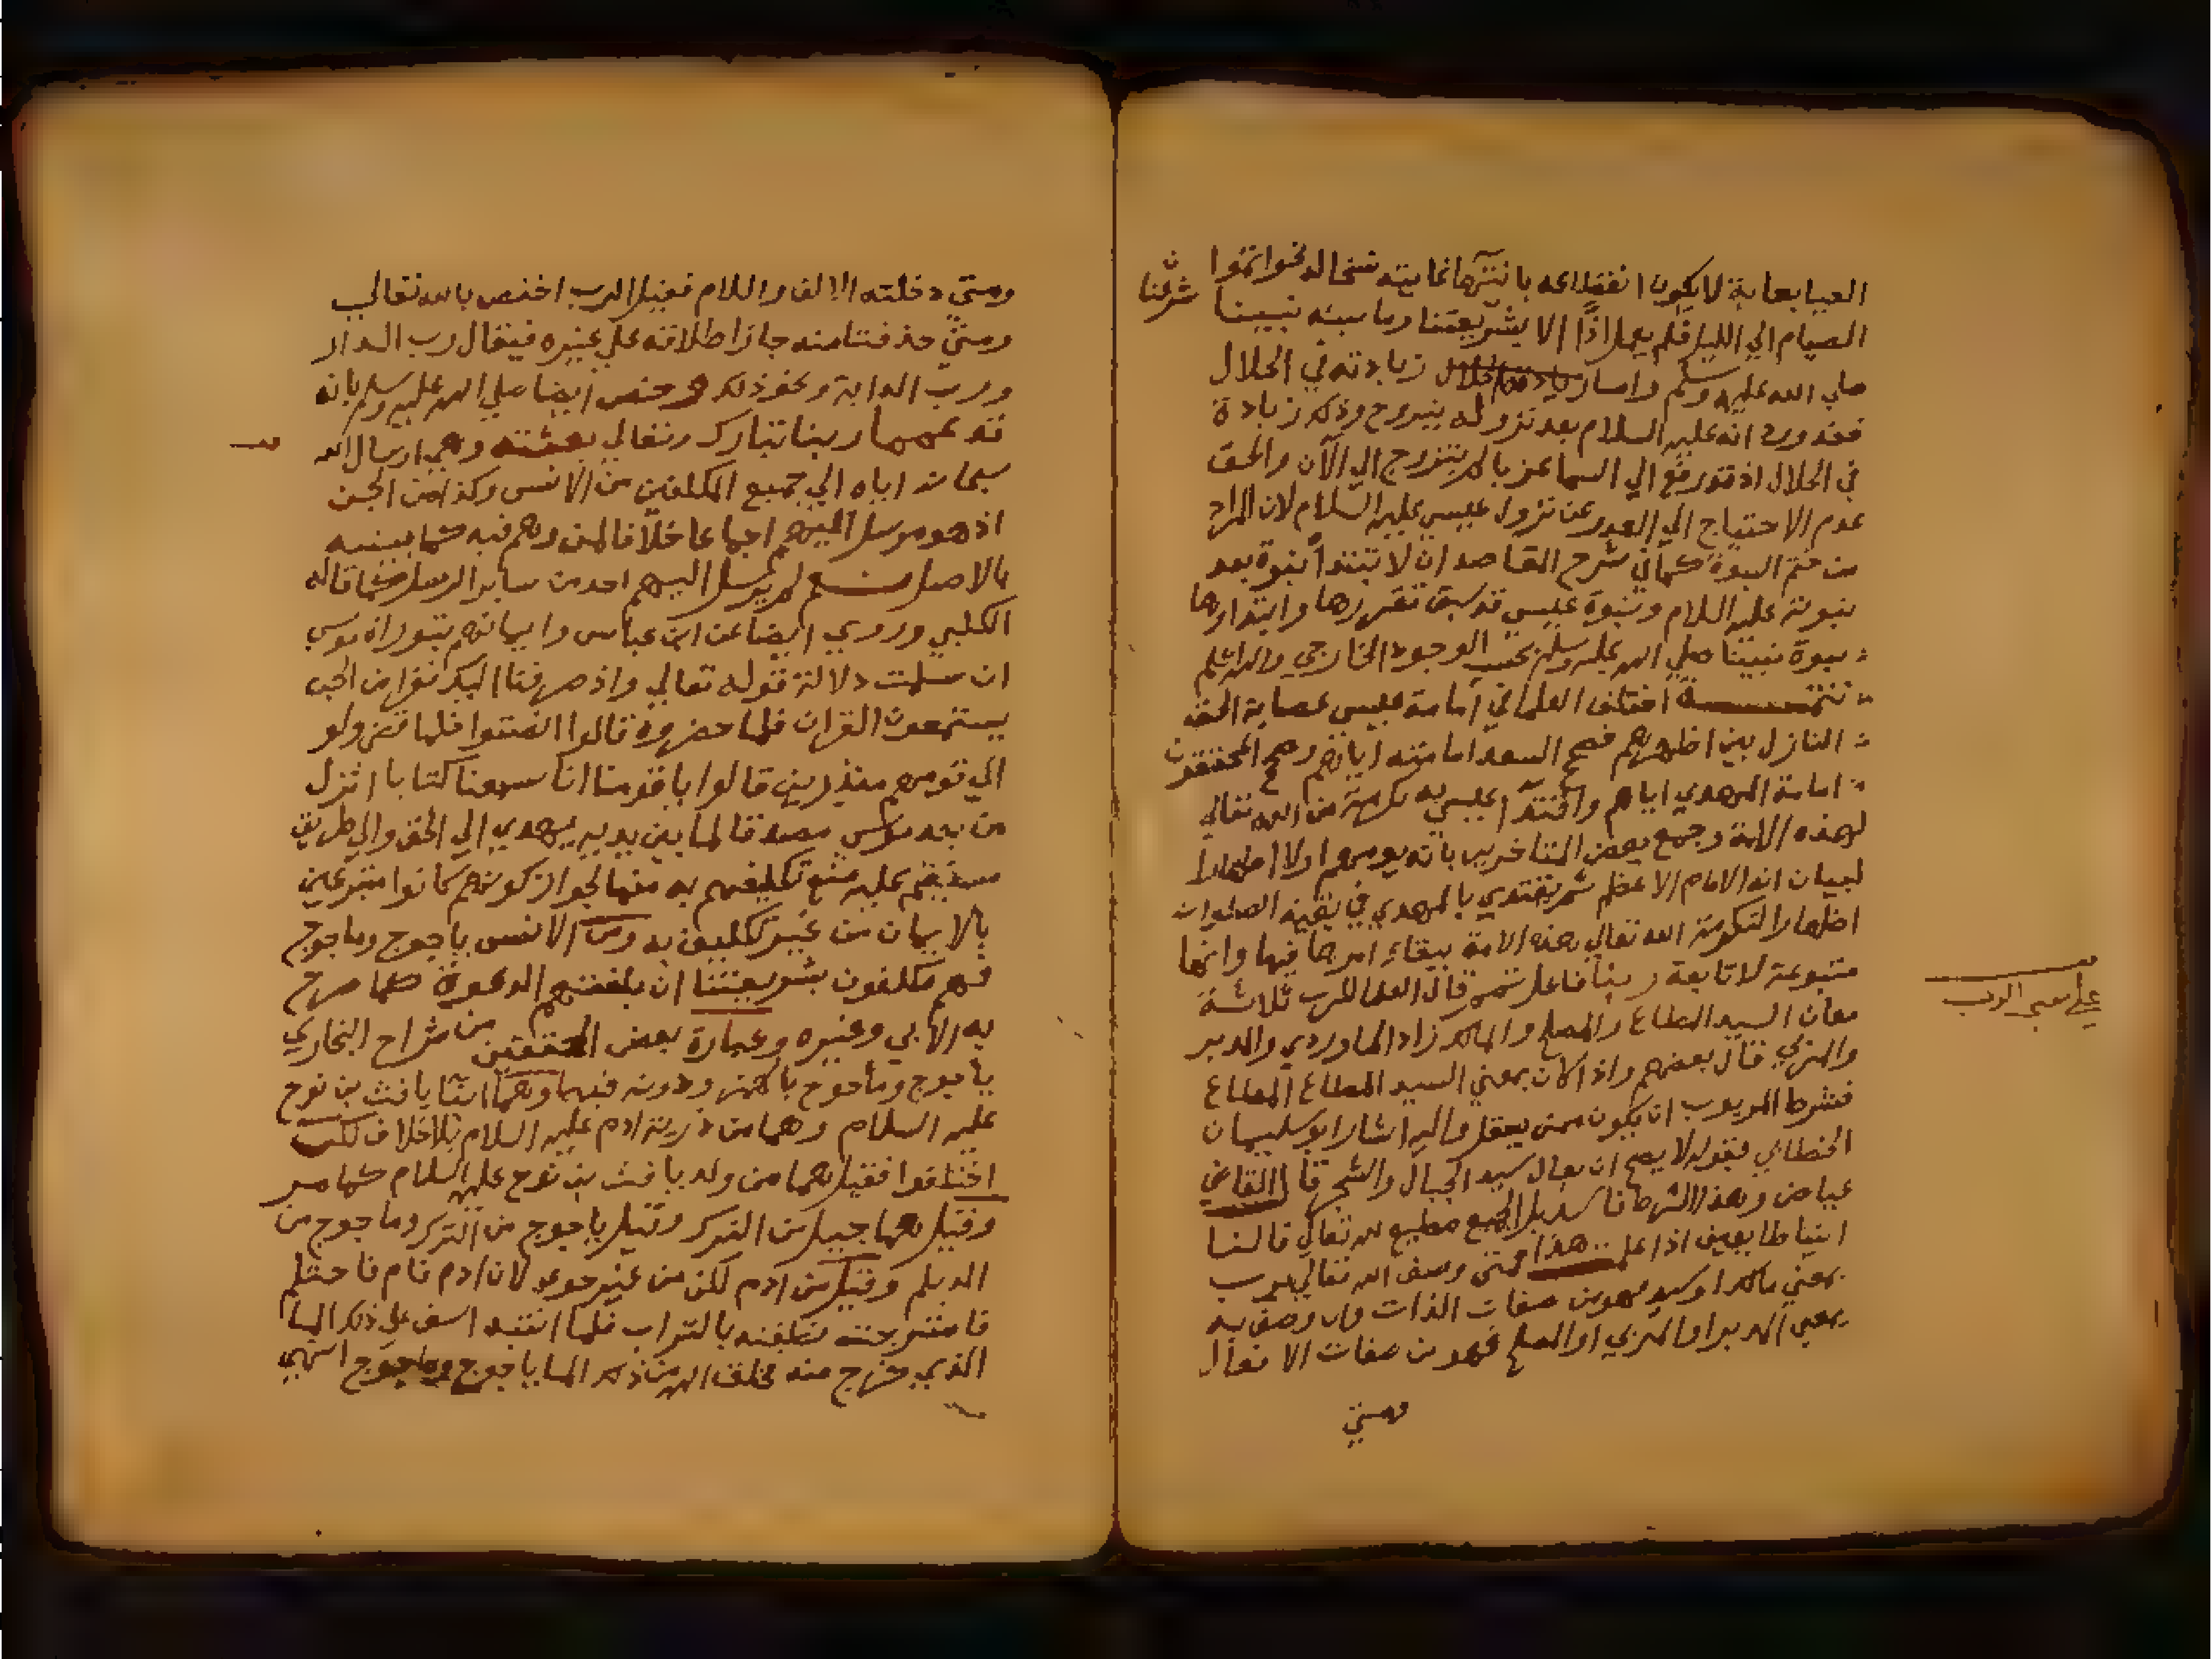 المغيا بغاية لا يكون انقطاعه بانتهاء غايته نسخا له نحو اتموا
الصيام الي الليل فلم يعمل اذًا الا بشريعتنا وما سنه نبينا
صلي الله عليه وسلم واما زيادته في الحلال
فقد ورد انه عليه السلام بعد نزوله يتزوج وذلك زيادة
في الحلال اذ قد رفع الي السما عزبا لم يتزوج الي الآن والحق
عدم الاحتياج الي العذر عن نزول عيسي عليه السلام لان المراد
من ختم النبوة كما في شرح المقاصد ان لا تبتدأ نبوة بعد
نبوته عليه السلام ونبوة عيسي قد سبق تقررها وابتداوها
نبوة نبينا صلي الله عليه وسلم بحسب الوجود الخارجي والله اعلم
تتمة اختلف العلما في امامة عيسي عصابة الحق
النازل بين اظهرهم فصحح السعد امامته اياهم وصحح المحققون
امامة المهدي اياهم واقتدآ عيسي به تكرمة من الله تعالي
لهذه الامة وجمع بعض المتاخرين بانه يومهم اولا اظهارا
لبيان انه الامام الاعظم ثم يقتدي بالمهدي في بقية الصلوات
اظهارا لتكرمة الله تعالي هذه الامة ببقاء امرها فيها وانها
متبوعة لا تابعة ربنا فاعل ختم قال العلما للرب ثلاثة
علي معني الرب
معان السيد المطاع والمصلح والمالك زاد الماوردي والمدبر
والمربي قال بعضهم واذا كان بمعني السيد المطاع المطاع
فشرط المربوب ان يكون ممن يعقل واليه اشار ابو سليمان
الخطابي بقوله لا يصح ان يقال سيد الجبال والشجر قال القاضي
عياض وهذا الشرط فاسد بل الجميع مطيع لله تعالي قالتا
اتينا طايعين اذا علم هذا فمتي وصف الله تعالي برب
بمعني مالك او سيد فهو من صفات الذات وان وصف به
بمعني المدبر او المربي او المصلح فهو من صفات الافعال
ومتي
ومتي دخلته الالف واللام فقيل الرب اختص بالله تعالي
ومتي حذفتا منه جاز اطلاقه علي غيره فيقال رب الدار
ورب الدابة ونحو ذلك وخص ايضا صلي الله عليه وسلم بانه
قد عمما ربنا تبارك وتعالي بعثته وهي ارسال الله
سبحانه اياه الي جميع المكلفين من الانس وكذا من الجن
اذ هو مرسل اليهم اجماعا خلافا لمن وهم فيه كما بينه
بالاصل لم يرسل اليهم احد من ساير الرسل كما قاله
الكلبي وروي ايضا عن ابن عباس وايمانهم بتوراة موسي
ان سلمت دلالة قوله تعالي واذ صرفنا اليك نفرا من الجن
يستمعون القران فلما حضروه قالوا انصتوا فلما قضي ولو
الي قومهم منذرين قالوا يا قومنا انا سمعنا كتابا انزل
من بعد موسي مصدقا لما بين يديه يهدي الي الحق والي طريق
مستقيم عليه منع تكليفهم به منها لجواز كونهم كانوا متبرعين
بالايمان من غير تكليف به ومن الانس ياجوج وماجوج
فهم مكلفون بشريعتنا ان بلغتهم الدعوة كما صرح
به الابي وغيره وعبارة بعض المحققين من شراح البخاري
ياجوج وماجوج بالهمز ودونه فيهما وهما ابنا يافث بن نوح
عليه السلام وهما من ذرية ادم عليه السلام بلا خلاف لكن
اختلفوا فقيل هما من ولد يافث بن نوح عليه السلام كما مر
وقيل هما جيل من الترك وقيل ياجوج من الترك وماجوج من
الديلم وقيل من ادم لكن من غير حوي لان ادم نام فاحتلم
فامتزجت نطفته بالتراب فلما انتبه اسف علي ذلك الما
الذي خرج منه فخلق الله من ذلك الما ياجوج وماجوج انتهي